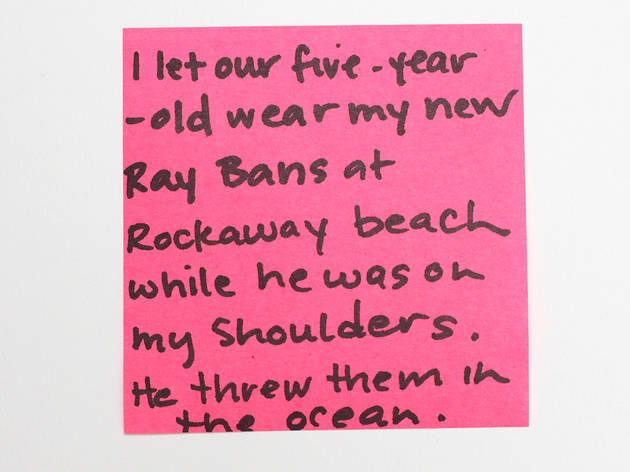 I let our five-year
-old wear my new
Ray Bans at
Rockaway beach
while he was on
my shoulders.
He threw them in
the ocean.